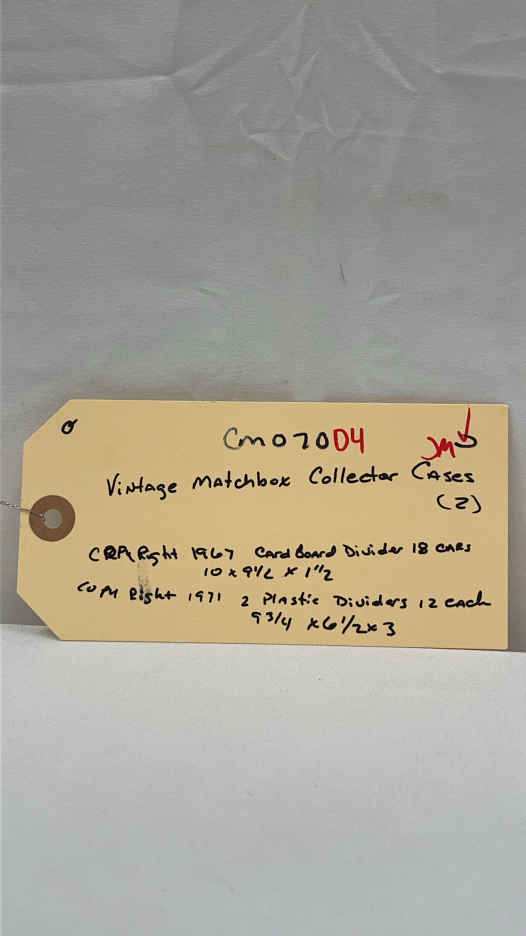 Cm070D4
Vintage Matchbox Collector Cases
(2)
Right 1967 Card Board Divider 18 cars
10 x 9 1/2 x 1 1/2
Right 1971 2 Plastic Dividers 12 each
9 3/4 x 6 1/2 x 3